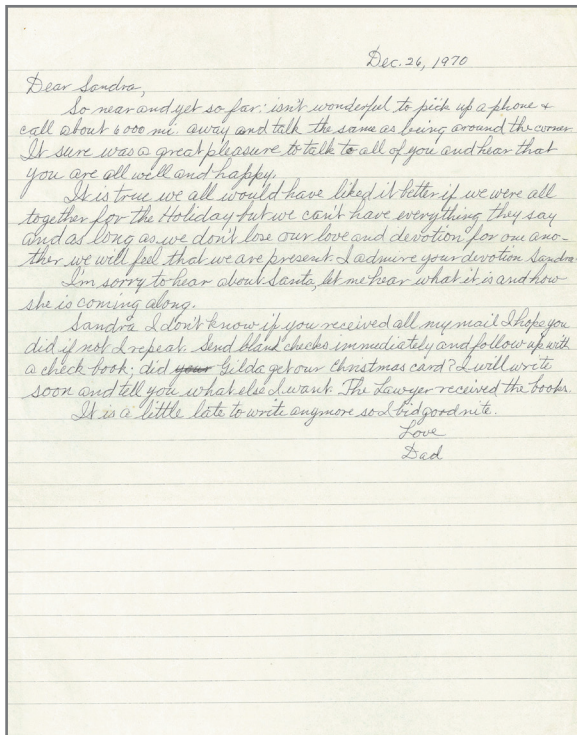 Dec. 26, 1970
Dear Sandra,
So near and yet so far: isn't wonderful to pick up a phone +
call about 6000 mi. away and talk the same as being around the corner.
It sure was a great pleasure to talk to all of you and hear that
you are all well and happy.
It is true we all would have liked it better if we were all
together for the Holiday but we can't have everything they say
and as long as we don't lose our love and devotion for one ano-
ther we will feel that we are present. I admire your devotion Sandra.
I'm sorry to hear about Santa, let me hear what it is and how
she is coming along.
Sandra I don't know if you received all my mail I hope you
did if not I repeat. Send blank checks immediately and follow up with
a check book; did your Gilda get our Christmas card? I will write
soon and tell you what else I want. The Lawyer received the books.
It is a little late to write anymore so I bid goodnite.
Love
Dad